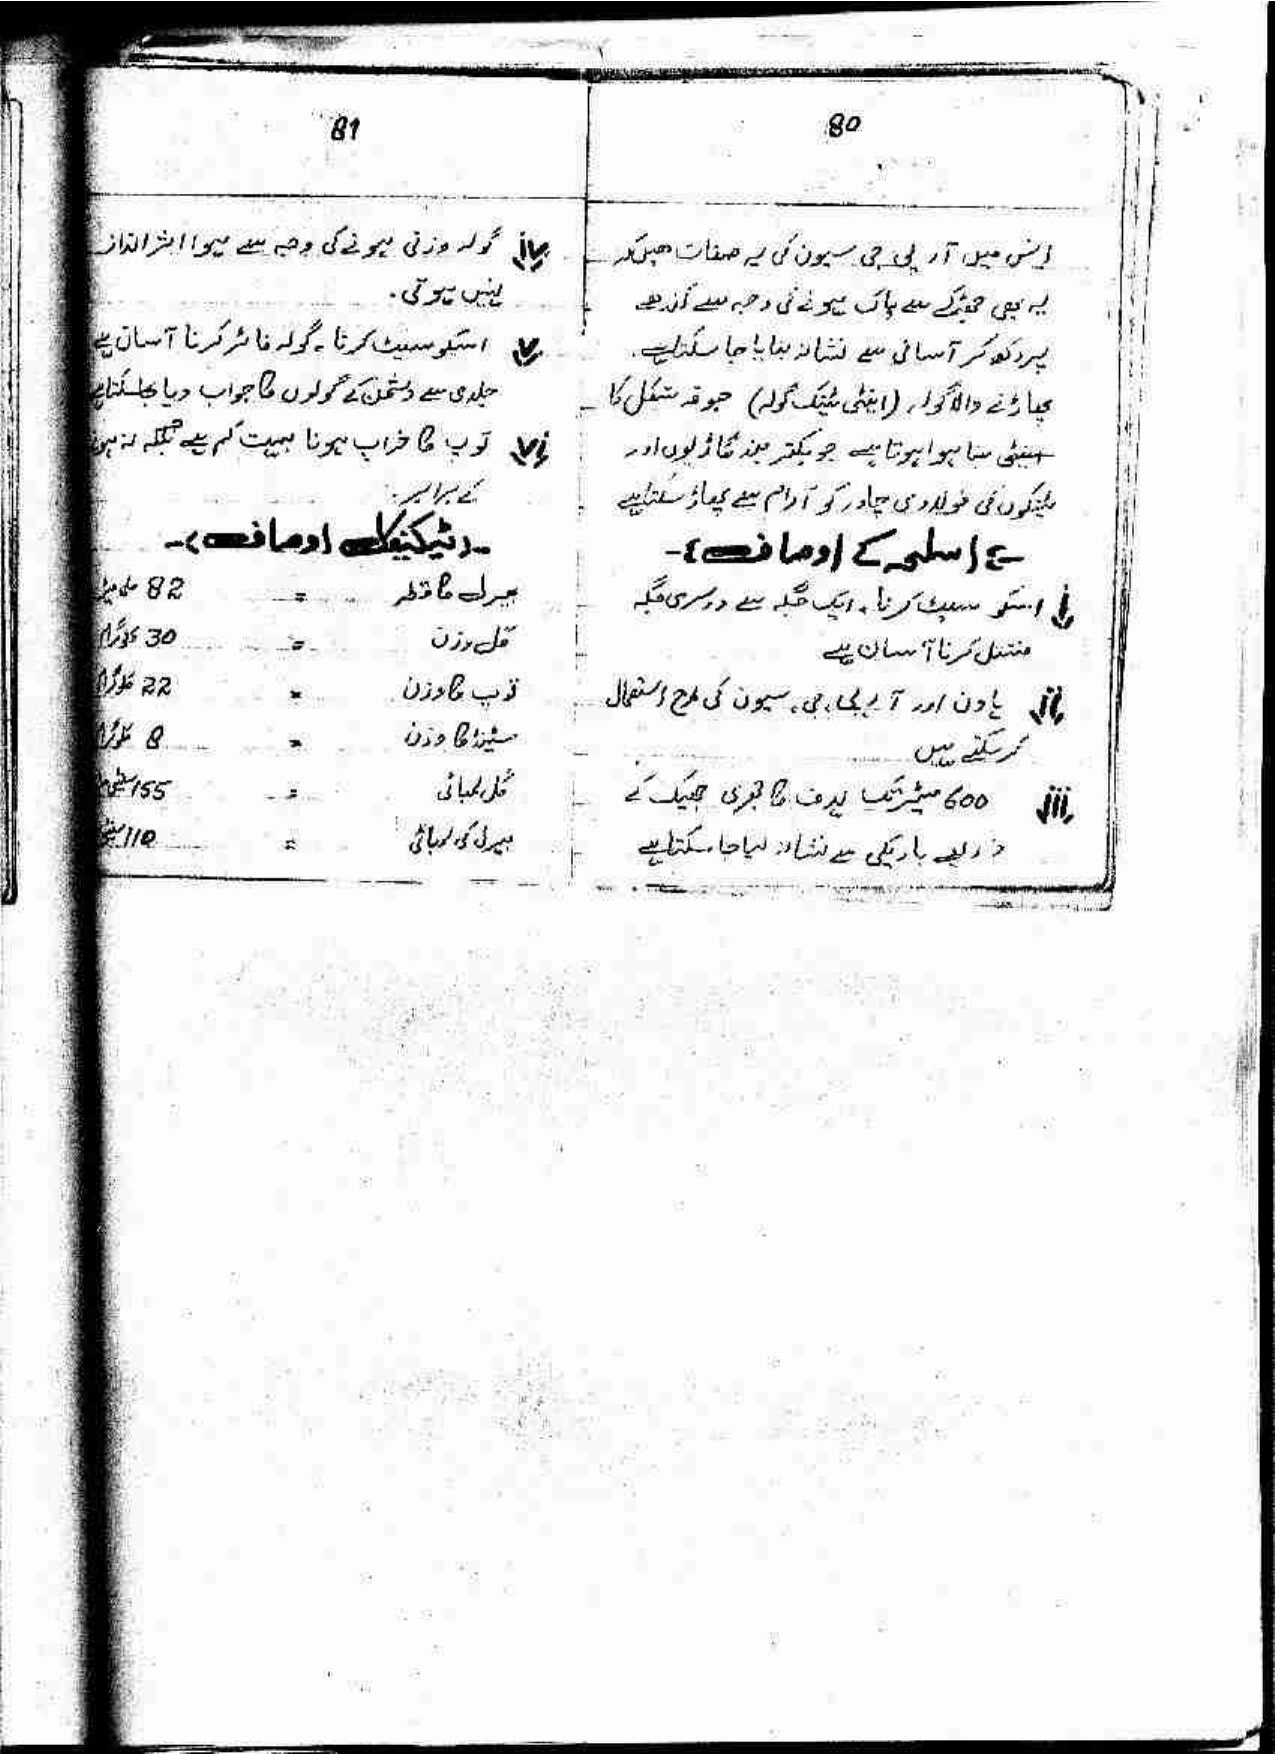 80
اس میں آر پی جی سیون کی یہ صفات ہیں کہ
یہ بھی جھٹکے سے پاک ہونے کی وجہ سے کندھے
پر رکھ کر آسانی سے نشانہ بنایا جا سکتا ہے۔
پھاڑنے والا گولہ (اینٹی ٹینک گولہ) جوفہ شکل کا
بنا ہوا ہوتا ہے جو بکتر بند گاڑیوں اور
ٹینکوں کی فولادی چادر کو آرام سے پھاڑ سکتا ہے
اسلحہ کے اوصاف
i اسکو سیٹ کرنا۔ ایک جگہ سے دوسری جگہ
منتقل کرنا آسان ہے
ii ہاون اور آر پی۔جی۔ سیون کی طرح استعمال
کر سکتے ہیں
iii 600 میٹر تک ہدف کا چیک کے
ذریعے باریکی سے نشانہ لیا جا سکتا ہے
81
iv گولہ وزنی ہونے کی وجہ سے ہوا اثر انداز
نہیں ہوتی۔
v اسکو سیٹ کرنا۔ گولہ فائر کرنا آسان ہے
جلدی سے دشمن کے گولوں کا جواب دیا جاسکتا ہے
vi توپ کا خراب ہونا بہت کم ہے بلکہ نہ ہونے
کے برابر۔
ٹیکنیکل اوصاف
بیرل کا قطر = 82 ملی میٹر
کل وزن = 30 کلوگرام
توپ کا وزن = 22 کلوگرام
سٹینڈ کا وزن = 8 کلوگرام
کل لمبائی = 155 سینٹی
بیرل کی لمبائی = 110 سینٹی